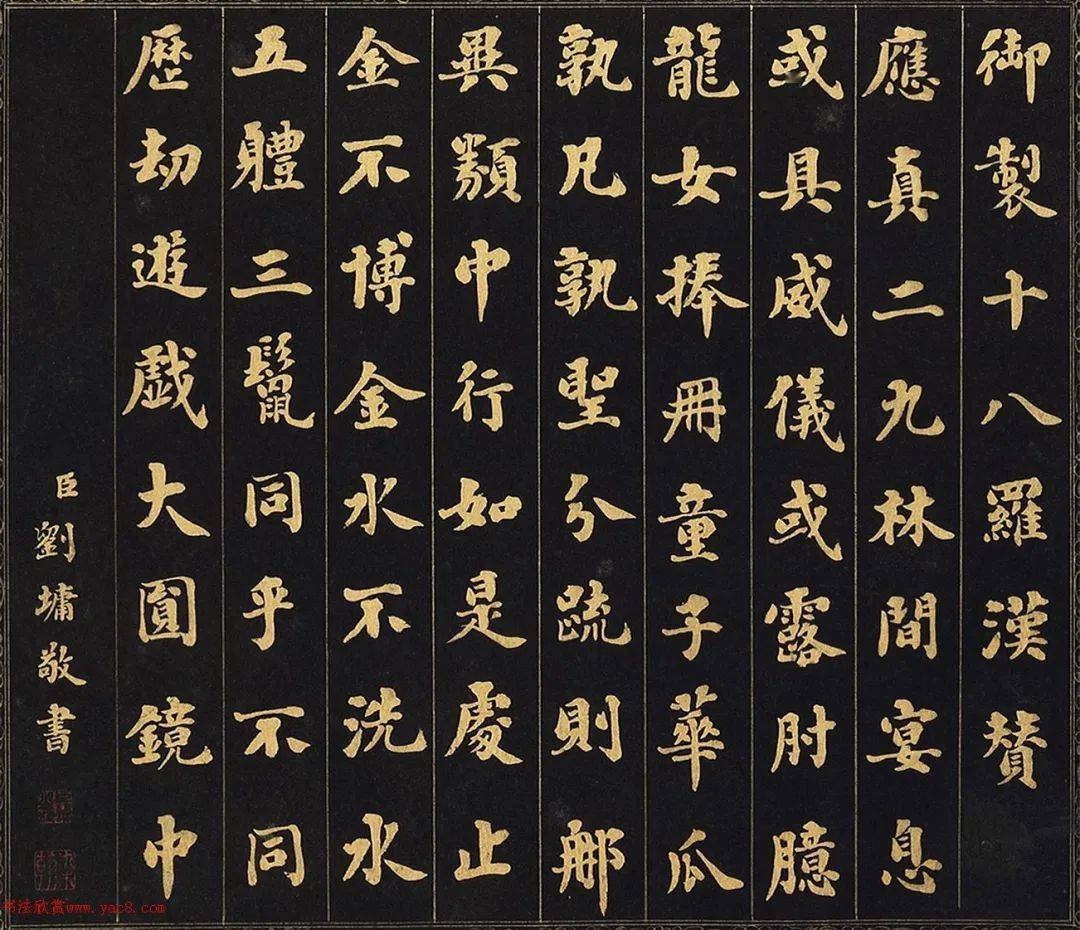 御製十八羅漢贊
應真二九林間宴息
或具威儀或露肘臆
龍女捧冊童子華瓜
孰凡孰聖分疏則那
異類中行如是處止
金不博金水不洗水
五體三鬣同乎不同
歷劫遊戲大圓鏡中
臣劉墉敬書
书法欣赏www.yac8.com